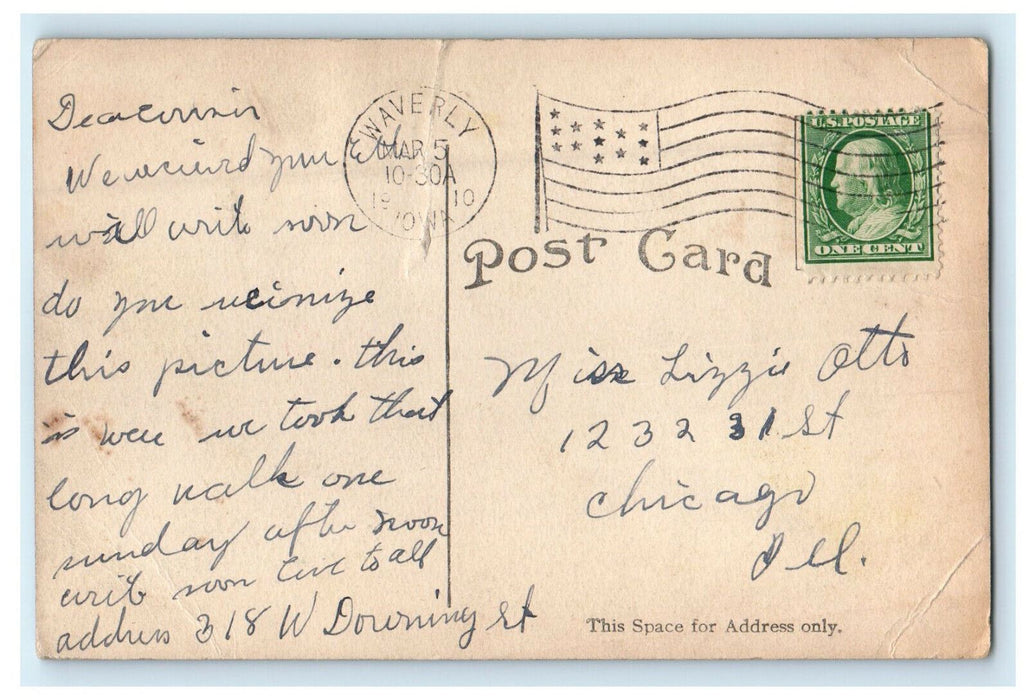 Dea cousin
We recierd you
will writ soon
do you recionize
this picture. this
is were we took that
long walk one
sunday after noon
writ soon love to all
address 318 W Downing st
WAVERLY
MAR 5
10-30A
1910
IOWA
U.S. POSTAGE
ONE CENT
Post Card
Miss Lizzie Otto
1232 31 St
Chicago
Ill.
This Space for Address only.